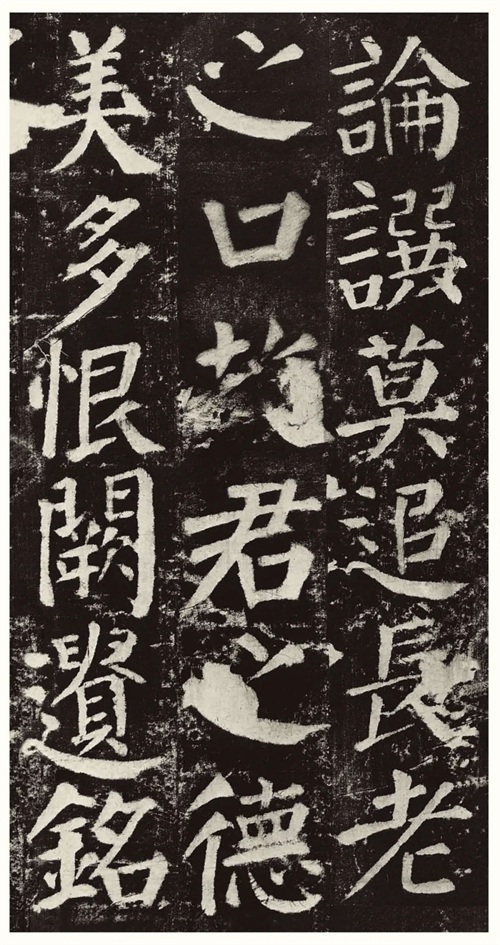 論譔莫追長老
之口故君之德
美多恨闕遺銘